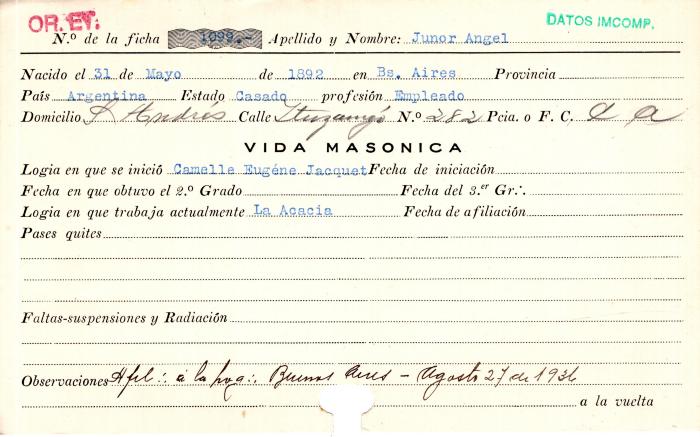 OR. ET.
DATOS IMCOMP.
N.º de la ficha 1099.- Apellido y Nombre: Junor Angel
Nacido el 31 de Mayo de 1892 en Bs. Aires Provincia
País Argentina Estado Casado profesión Empleado
Domicilio S Andrés Calle Ituzaingó N.º 282 Pcia. o F. C. C A
VIDA MASONICA
Logia en que se inició Camelle Eugéne Jacquet Fecha de iniciación
Fecha en que obtuvo el 2.º Grado Fecha del 3.er Gr∴
Logia en que trabaja actualmente La Acacia Fecha de afiliación
Pases quites
Faltas-suspensiones y Radiación
Observaciones Afil∴ á la Log∴ Buenos Aires - Agosto 27 de 1936
a la vuelta